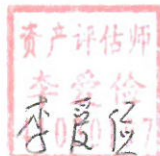 资产评估师
李爱俭
李爱俭